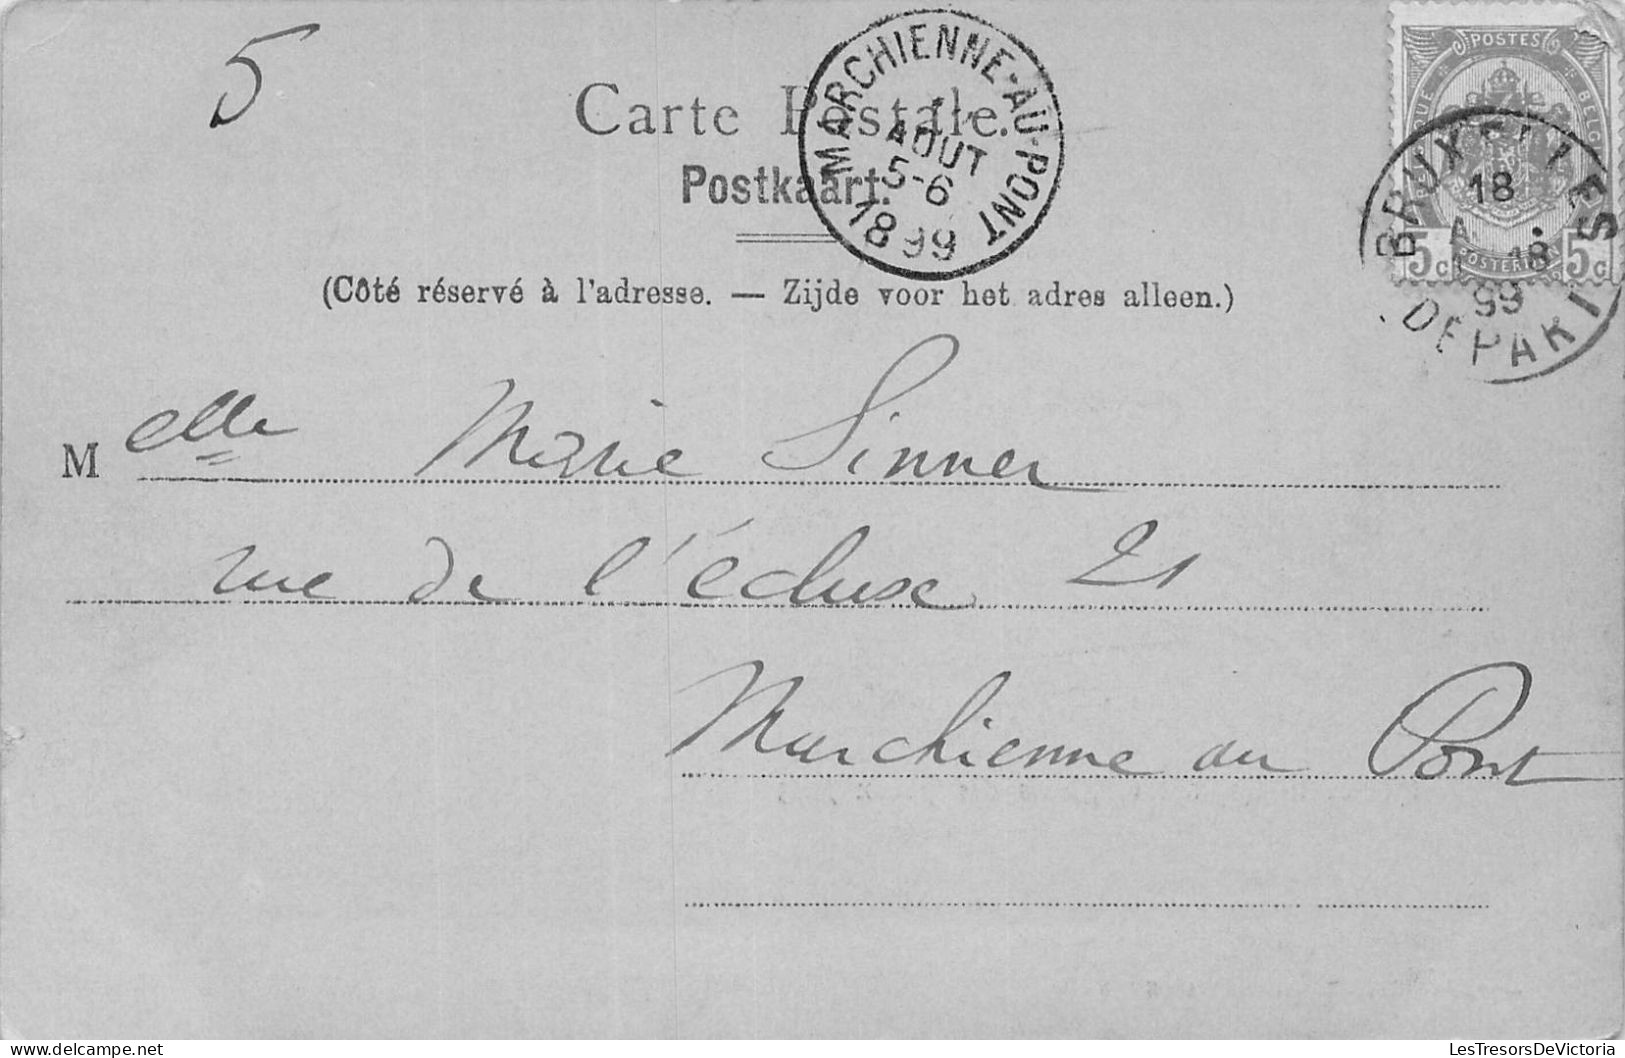 5
Carte Postale.
Postkaart.
(Côté réservé à l'adresse. — Zijde voor het adres alleen.)
MARCHIENNE-AU-PONT
AOUT
5-6
1899
POSTES
5c 5c
BRUXELLES
18
18
99
DEPART
Melle Marie Sinner
rue de l'écluse 21
Marchienne au Pont
LesTresorsDeVictoria